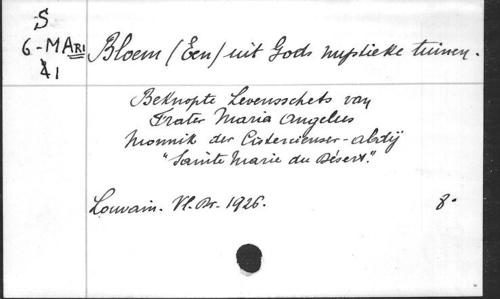 S
6-MARI
41
Bloem (Een) uit Gods mystieke tuinen.
Beknopte Levensschets van
Frater Maria Angelus
Monnik der Cistercienser-abdij
"Sainte Marie du Désert."
Louvain. Vl. Br. 1926. 8°